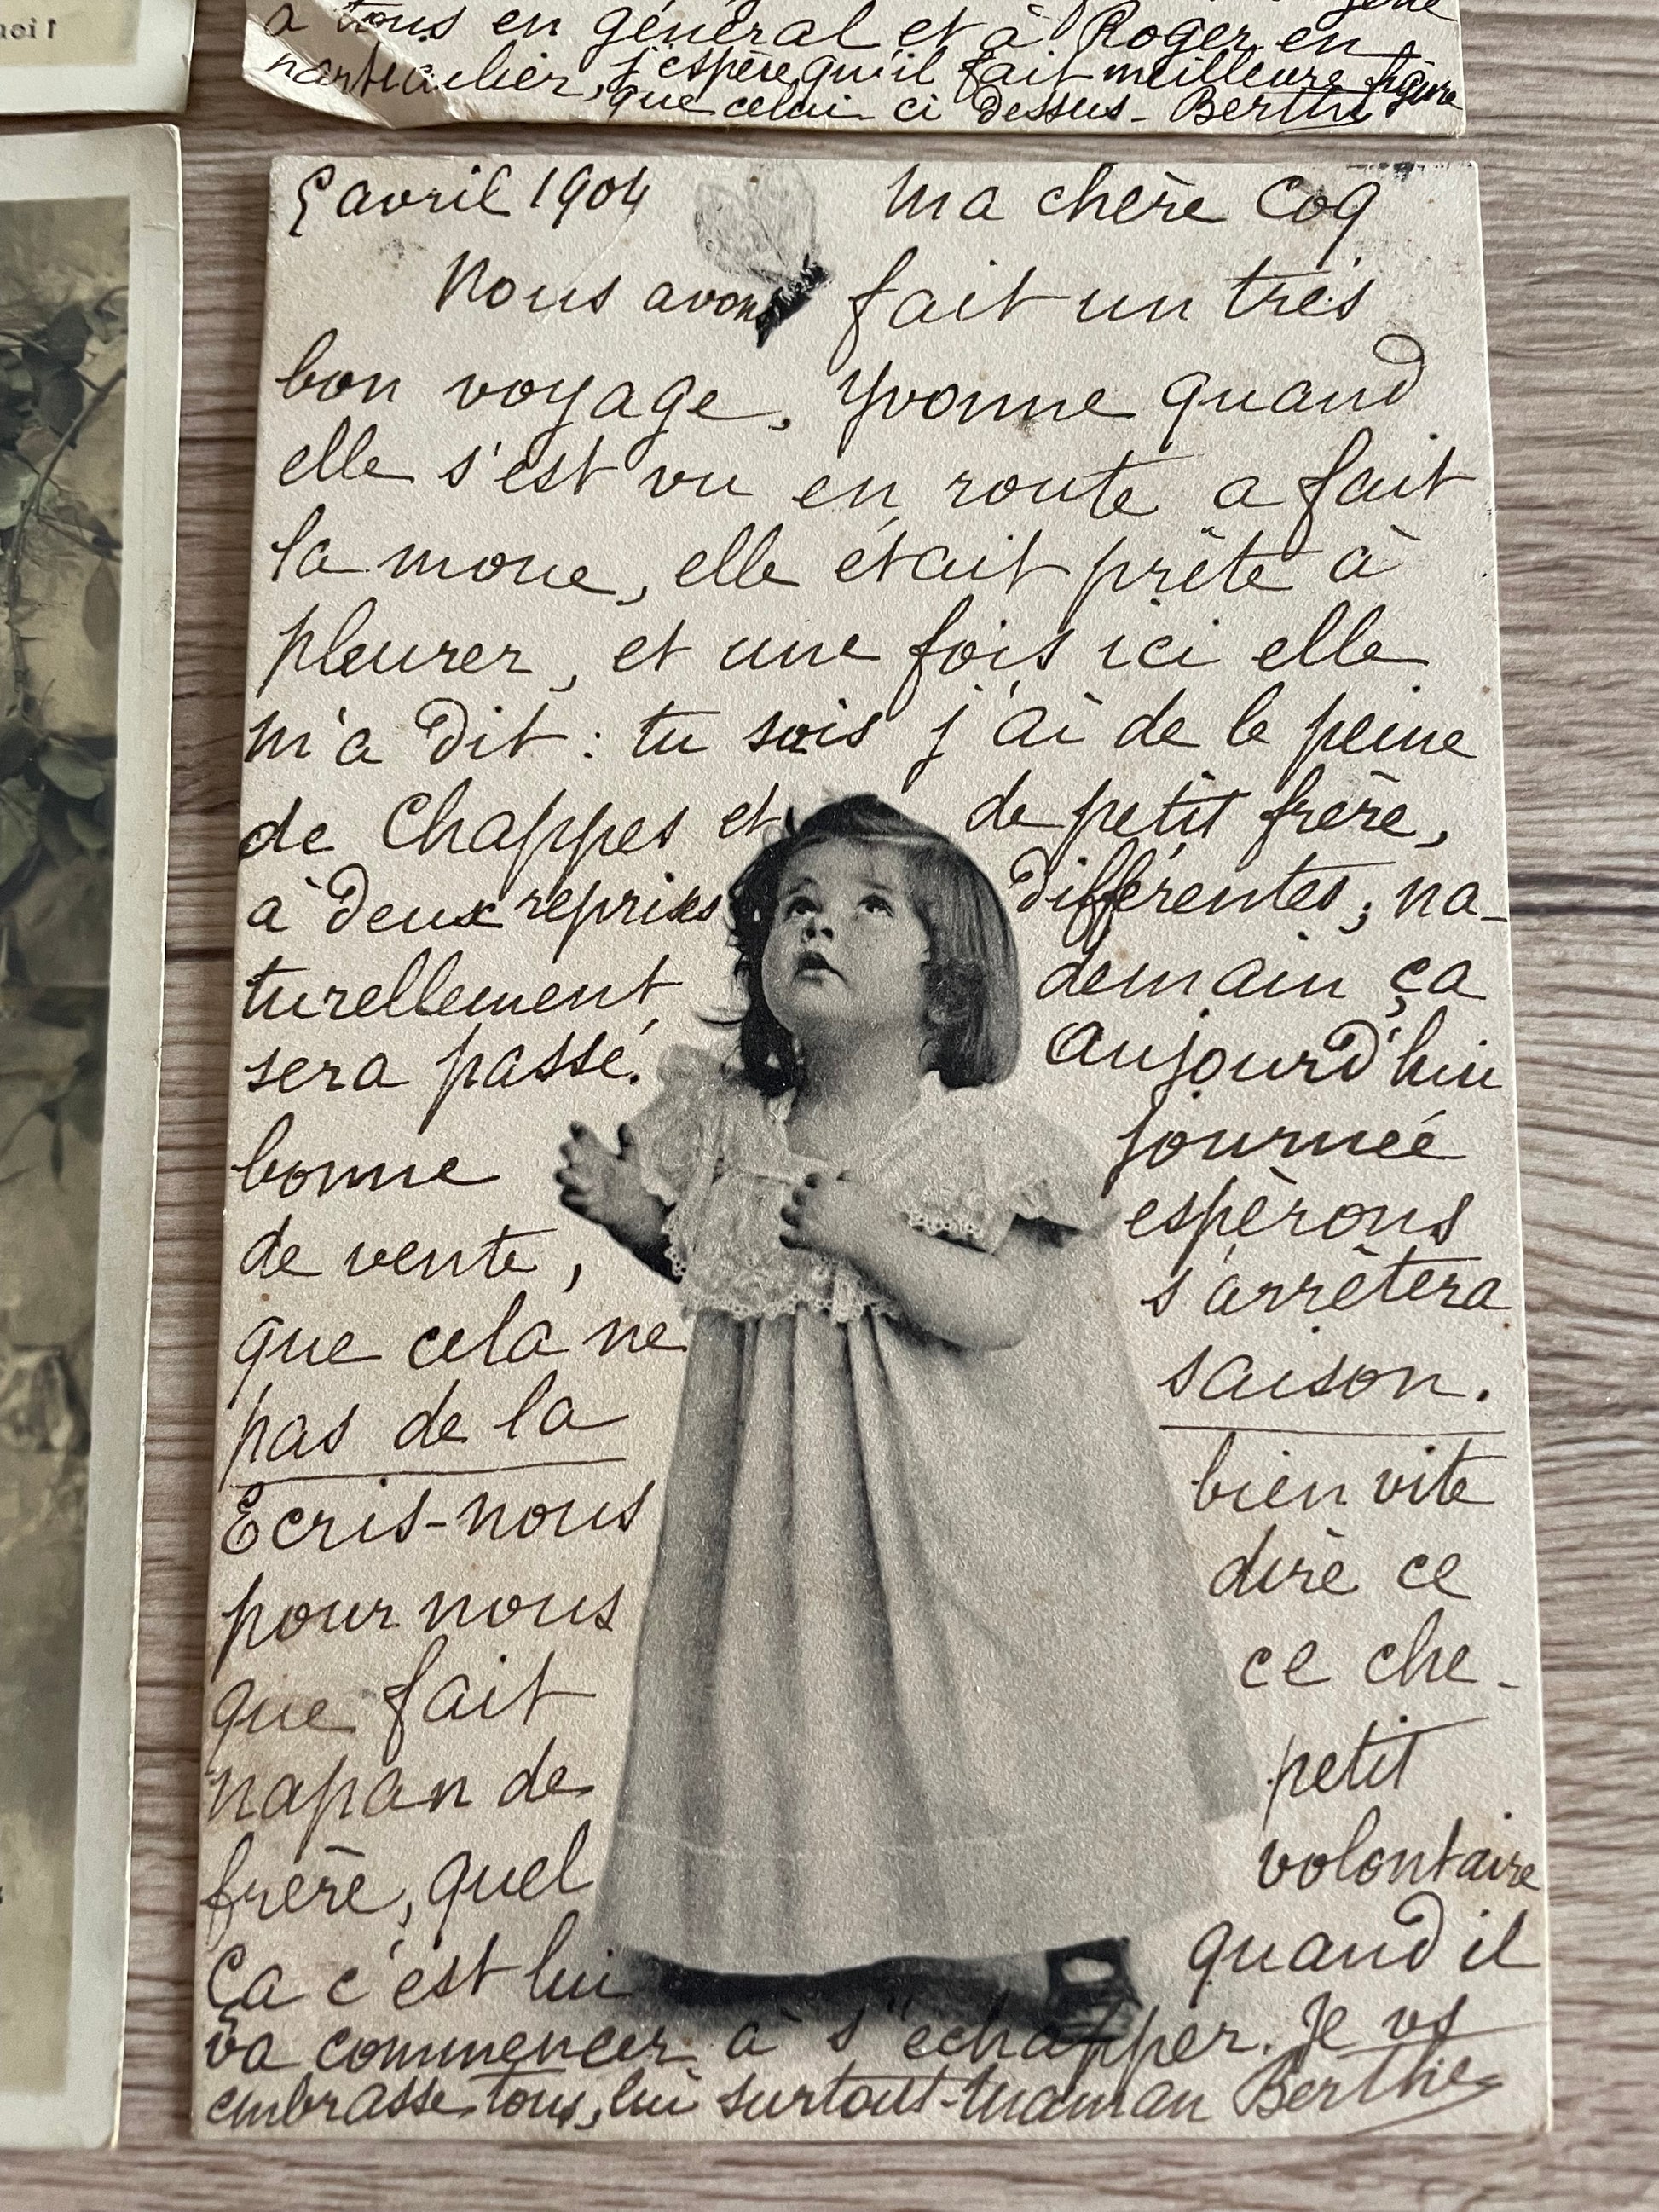 noi !
à tous en général et à Roger en
particulier, j'espère qu'il fait meilleure figure
que celui ci dessus - Berthe
avril 1904 ma chère Coq
Nous avons fait un très
bon voyage, Yvonne quand
elle s'est vu en route a fait
la moue, elle était prête à
pleurer, et une fois ici elle
m'a dit : tu sais j'ai de le peine
de Chappes et de petit frère,
à deux reprises différentes ; na-
turellement, demain ça
sera passé. Aujourd'hui
bonne journée
de vente, espèrons
que cela ne s'arrêtera
pas de la saison.
Ecris-nous bien vite
pour nous dire ce
que fait ce che-
napan de petit
frère, quel volontaire
Ça c'est lui quand il
va commencer à s'échapper. Je vs
embrasse tous, lui surtout - maman Berthe